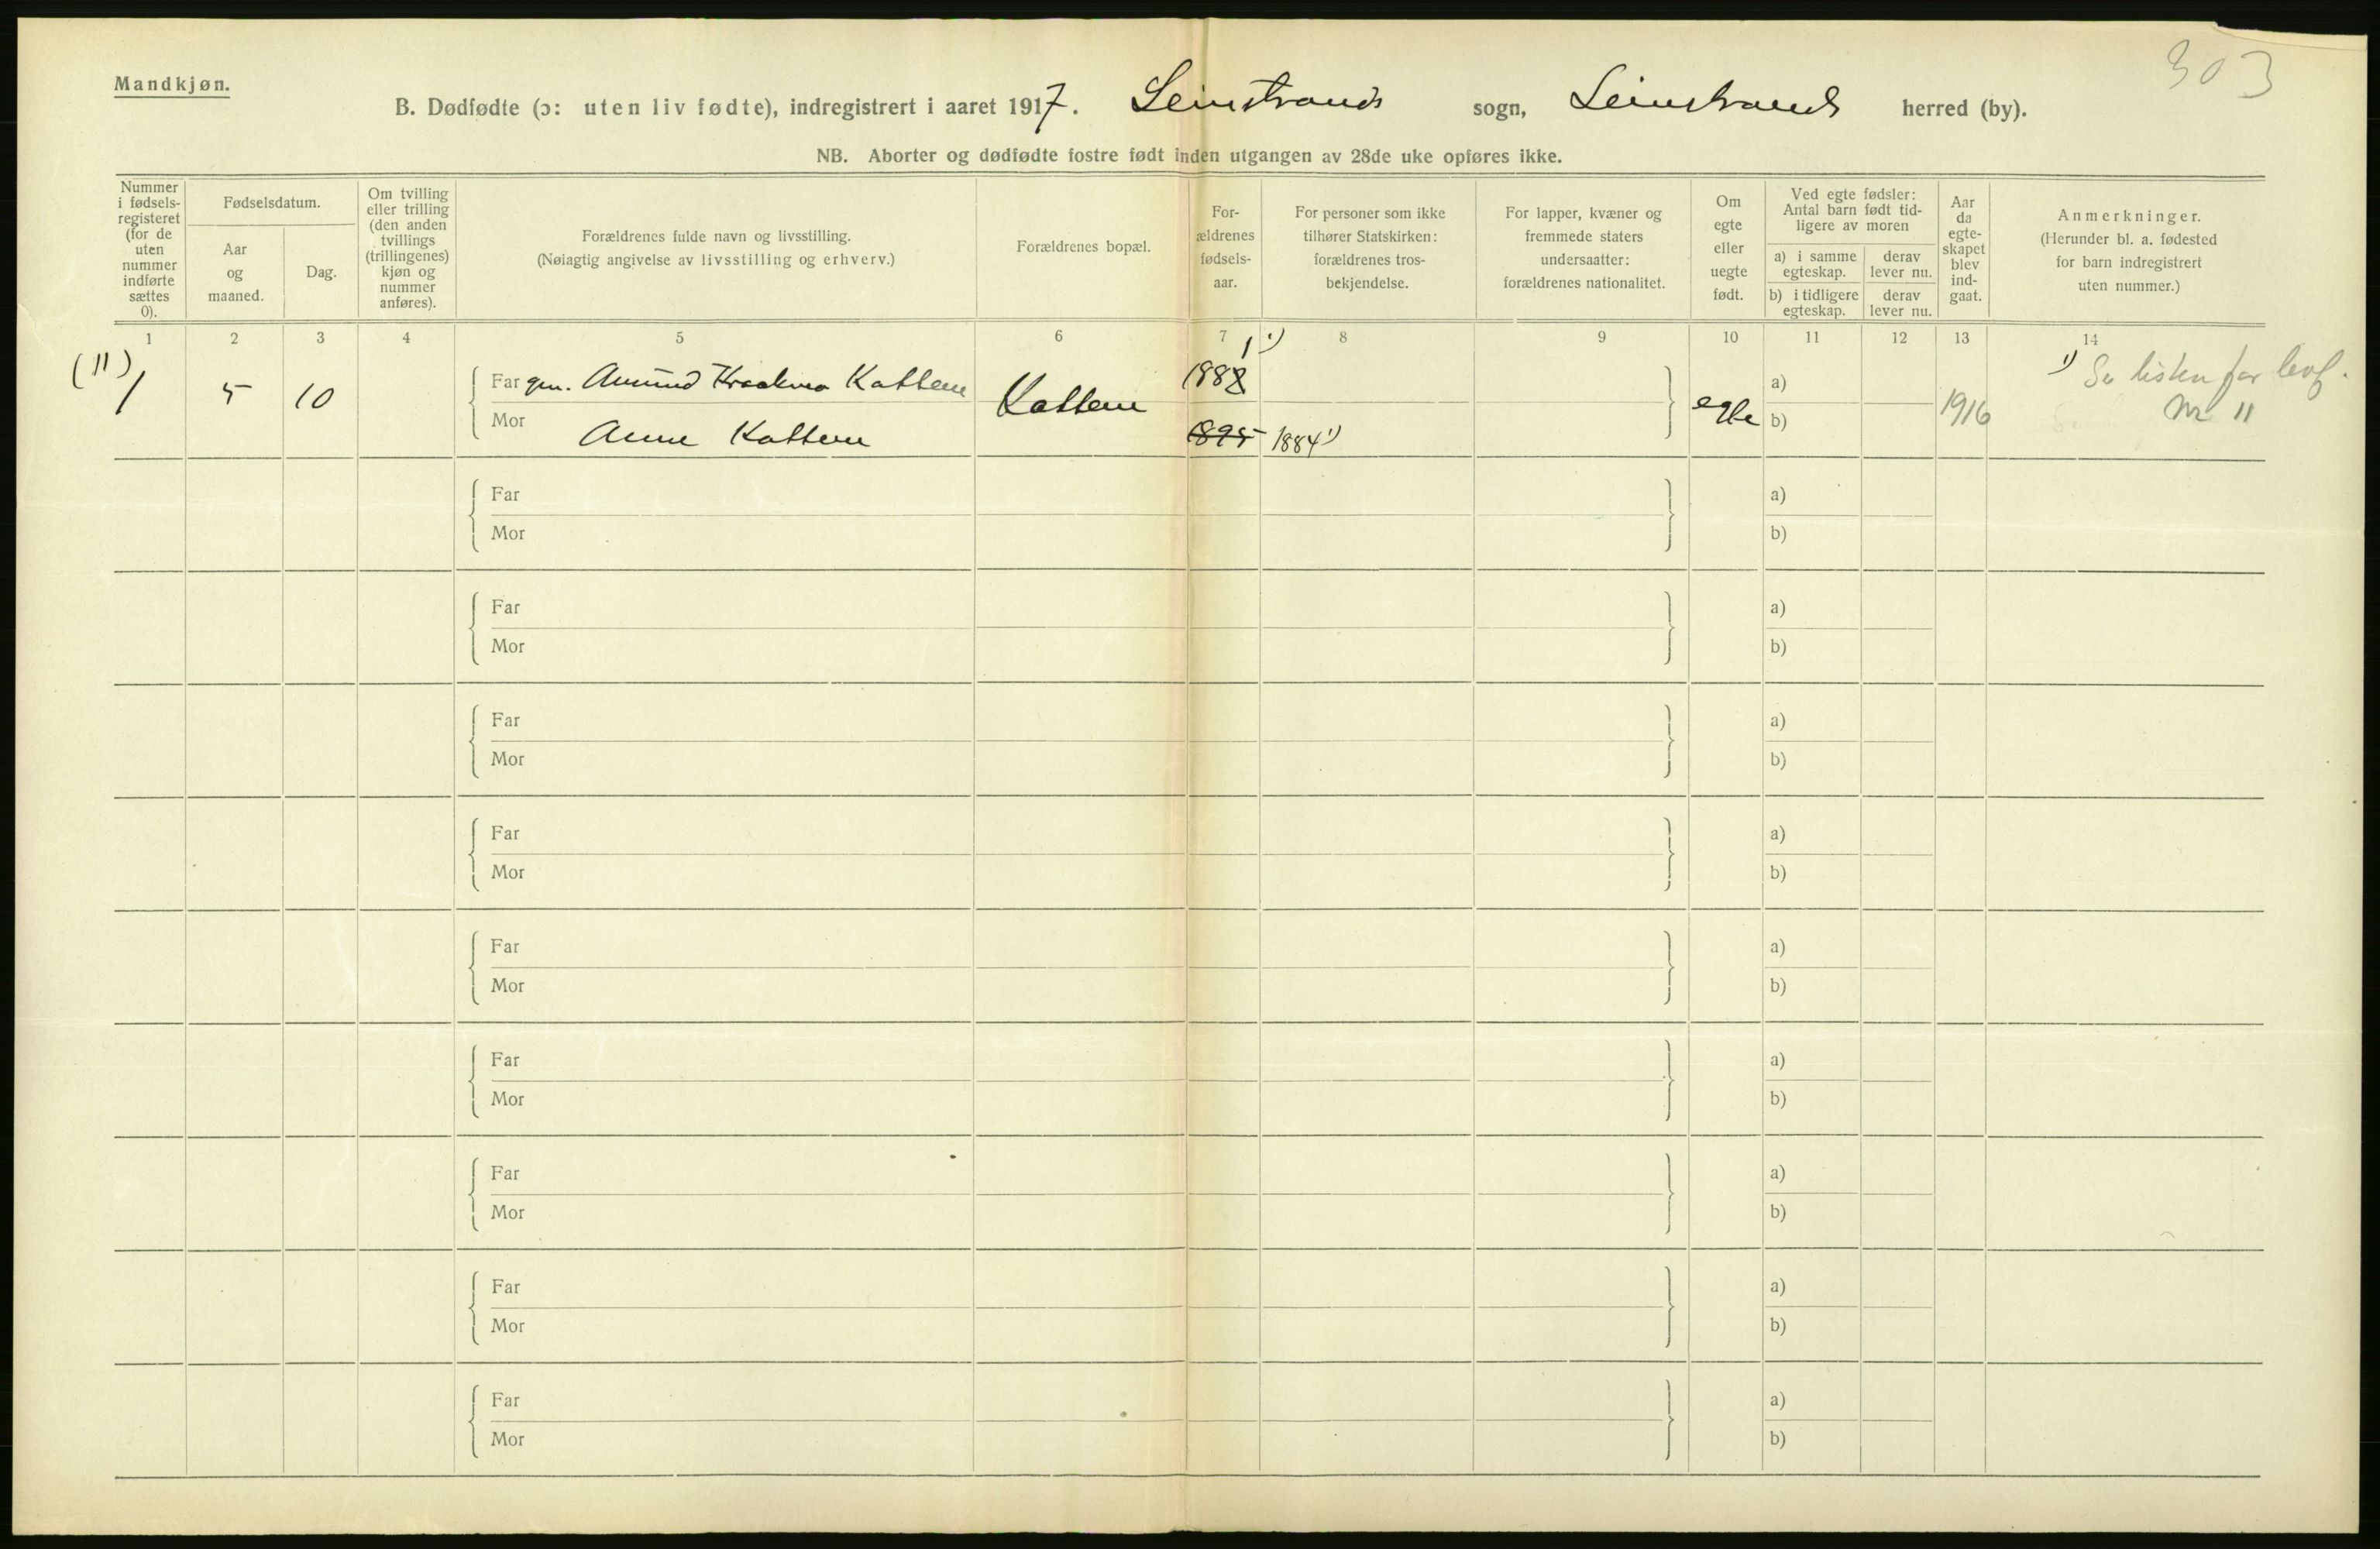 303
Mandkjøn.
B. Dødfødte (ɔ: uten liv fødte), indregistrert i aaret 1917. Leinstrands sogn, Leinstrands herred (by).
NB. Aborter og dødfødte fostre født inden utgangen av 28de uke opføres ikke.
Nummer i fødsels-registeret (for de uten nummer indførte sættes 0).
Fødselsdatum.
Aar og maaned.
Dag.
Om tvilling eller trilling (den anden tvillings (trillingenes) kjøn og nummer anføres).
Forældrenes fulde navn og livsstilling.
(Nøiagtig angivelse av livsstilling og erhverv.)
Forældrenes bopæl.
For-ældrenes fødsels-aar.
For personer som ikke tilhører Statskirken: forældrenes tros-bekjendelse.
For lapper, kvæner og fremmede staters undersaatter: forældrenes nationalitet.
Om egte eller uegte født.
Ved egte fødsler: Antal barn født tid-ligere av moren
a) i samme egteskap.
derav lever nu.
b) i tidligere egteskap.
derav lever nu.
Aar da egte-skapet blev ind-gaat.
Anmerkninger.
(Herunder bl. a. fødested for barn indregistrert uten nummer.)
1 2 3 4 5 6 7 8 9 10 11 12 13 14
(11) 1 5 10
Far gm. Amund Kattem
Mor Anne Kattem
Kattem
1888 1 1)
1895 1884 1)
egte
a)
b)
1916
1) Se listen for levf.
Nr 11
Far a)
Mor b)
Far a)
Mor b)
Far a)
Mor b)
Far a)
Mor b)
Far a)
Mor b)
Far a)
Mor b)
Far a)
Mor b)
Far a)
Mor b)
Far a)
Mor b)